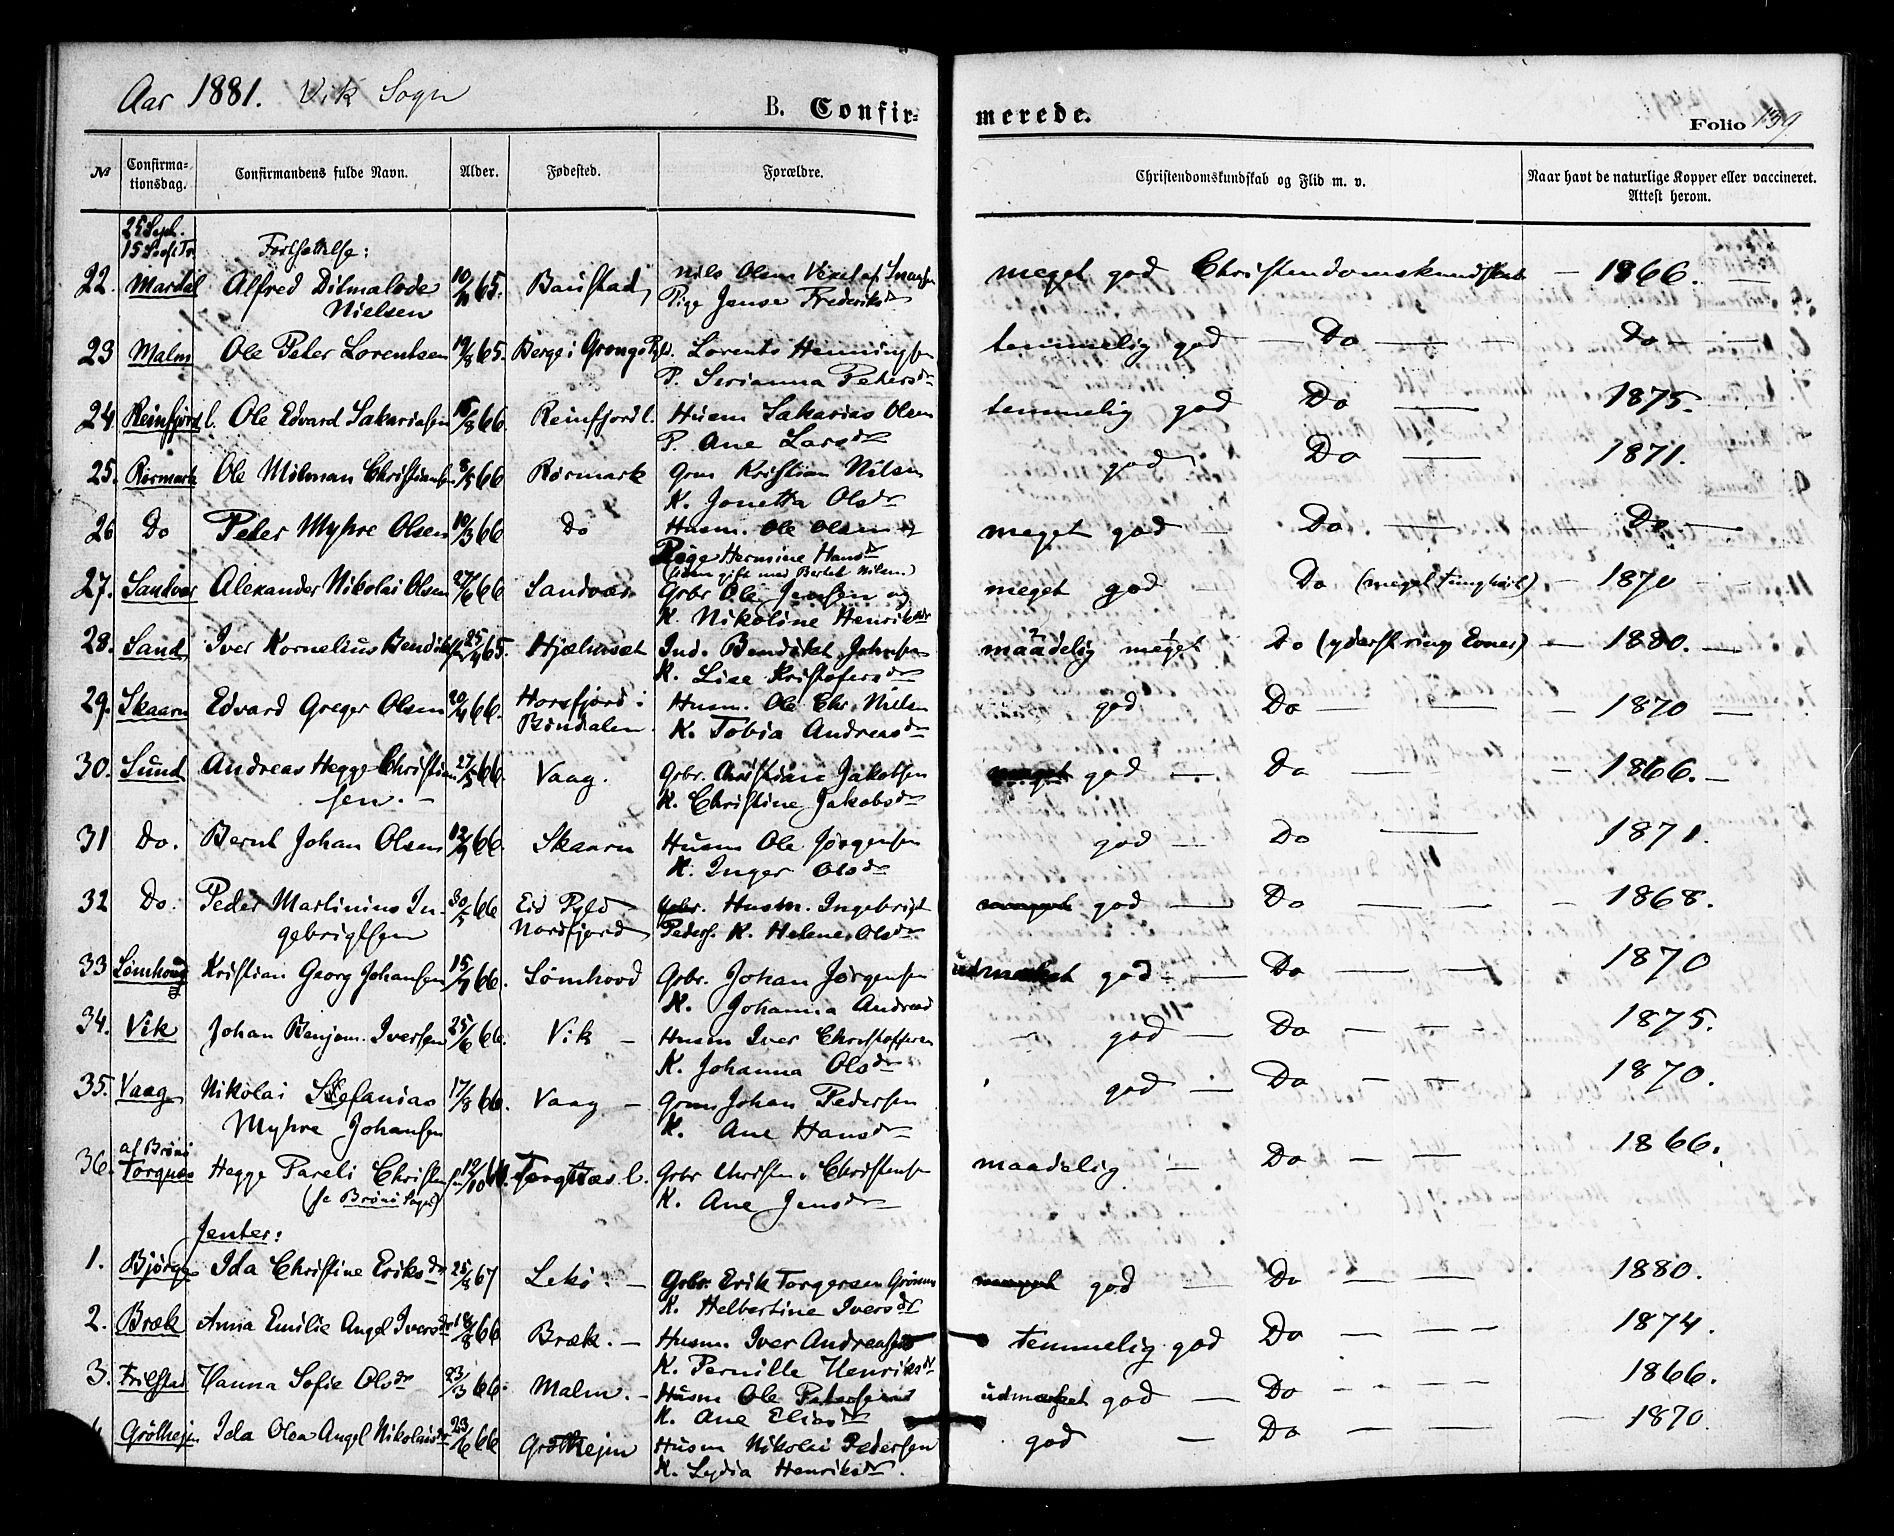 Aar 1881. Vik Sogn
B. Confir-
merede.
Folio 139
№
Confirma-
tionsdag.
Confirmandens fulde Navn.
Alder.
Fødested.
Forældre.
Christendomskundskab og Flid m. v.
Naar havt de naturlige Kopper eller vaccineret.
Attest herom.
25 Sept.
Fortsættelse:
22. Mardal Alfred Ditmalode 10/11 65. Baustad Nils Olsen meget god Christendomskundskab — 1866. —
Nielsen Pige Jense Frederiksdr
23 Malm Ole Peter Lorentsen 19/8 65. Berge i Grongs Pgld. Lorents Henningsen temmelig god — Do — Do —
P. Serianna Petersdr
24 Reinfjord l. Ole Edvard Sakariasen 15/8 66. Reinfjord l. Husm Sakarias Olsen temmelig god Do — 1875.
P. Ane Larsdr
25. Rørmark Ole Milman Christiansen 8/5 66 Rørmark Grm Kristian Nilsen god Do — 1871.
K. Jonetta Olsdr
26 Do Peter Myhre Olsen 10/3 66 Do Husm. Ole Olsen og meget god Do — Do —
Pige Hermine Hansdr
(siden gift med Bertel Nilsen.)
27. Sandvær Alexander Nikolai Olsen 27/6 66 Sandvær Grbr Ole Jensen og meget god Do (meget tunghørt) — 1870 —
K. Nikoline Henriksdr
28. Sand Iver Kornelius Bendiktsen 25/4 65. Hjælmset Ind. Bendikt Johnsen maadelig meget Do (yderst ringe Evner) — 1880. —
K. Lise Kristofersdr
29. Skaarn Edvard Greger Olsen 20/4 66. Horsfjord i Husm. Ole Chr. Nilsen god Do — 1870 —
Bindalen K. Tobia Andreasdr
30. Sund Andreas Hegge Christian- 27/5 66. Vaag. Grbr. Christian Jakobsen meget god — Do — 1866. —
sen. — K. Christine Jakobsdr
31 Do. Bernt Johan Olsen 12/9 66. Skaarn Husm Ole Jørgensen god — Do — 1871.
K. Inger Olsdr
32 Do. Peder Martinius In- 30/5 66 Eid Pgld Grbr. Husm. Ingebrigt meget god — Do — 1868.
gebrigtsen Nordfjord Peders. K. Helene Olsdr
33 Sømhoug Kristian Georg Johansen 15/7 66. Sømhovd Grbr. Johan Jørgensen udmærket god — Do — 1870
K. Johanna Andreasd
34. Vik Johan Benjam. Iversen 25/6 66. Vik — Husm Iver Christoffersen god — Do — 1875.
K. Johanna Olsdr
35. Vaag Nikolai Stefanias 17/8 66. Vaag — Grm Johan Pedersen god — Do — 1870.
Myhre Johansen K. Ane Hansdr
af Brønø
36. Torgnes Hegge Pareli Christensen 12/10 Torgnes l. Grbr Christen Christensen maadelig — Do — 1866.
(se Brønø Sogn) K. Ane Jensdr
Jenter:
1. Bjørge Ida Christine Eriksdr 25/8 67 Lekø: — Grbr. Erik Torgersen meget god — Do — 1880.
K. Helbertine Iversdr
2. Bræk Anna Emilie Angel Iversdr 18/8 66 Bræk. — Husm. Iver Andreassen temmelig god Do — 1874.
K. Pernille Henriksdr
3. Frilstad Hanna Sofie Olsdr 23/3 66. Malm. — Husm Ole Petersen udmærket god — Do — 1866.
K. Ane Eliasdr
Grøtheim Ida Olea Angel Nikolaisdr 23/6 66 Grøtheim Husm Nikolai Pedersen god — Do — 1870.
K. Lydia Henriksdr.